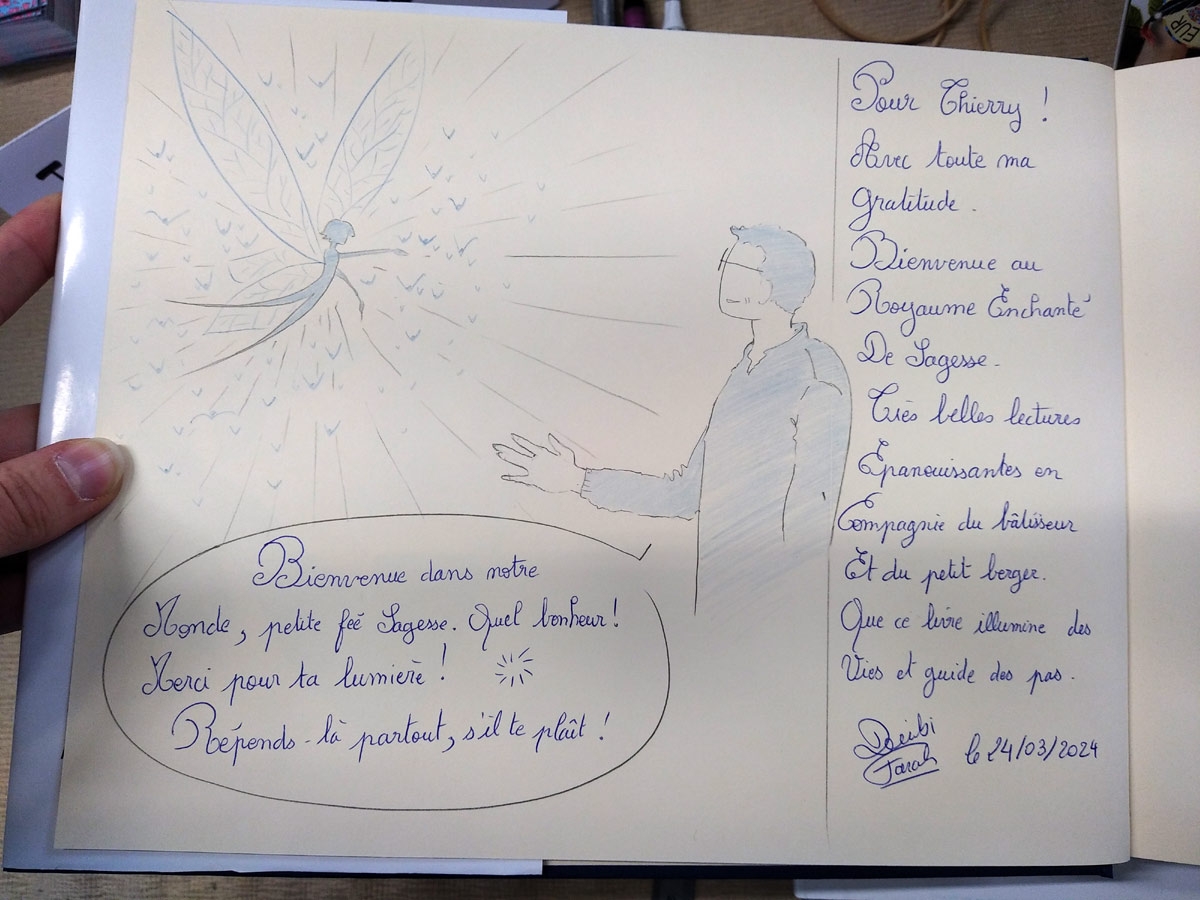 Pour Thierry !
Avec toute ma
gratitude.
Bienvenue au
Royaume Enchanté
De Sagesse.
Très belles lectures
Épanouissantes en
Compagnie du bâtisseur
Et du petit berger.
Que ce livre illumine des
Vies et guide des pas.
le 24/03/2024
Bienvenue dans notre
Monde, petite fée Sagesse. Quel bonheur !
Merci pour ta lumière !
Répends-là partout, s'il te plaît !
EUR